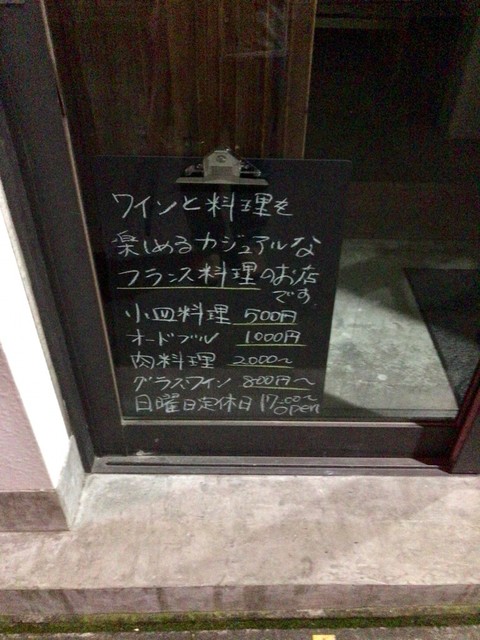 ワインと料理を
楽しめるカジュアルな
フランス料理のお店
です。
小皿料理 500円
オードブル 1000円
肉料理 2000〜
グラスワイン 800円〜
日曜日定休日 17:00〜
open